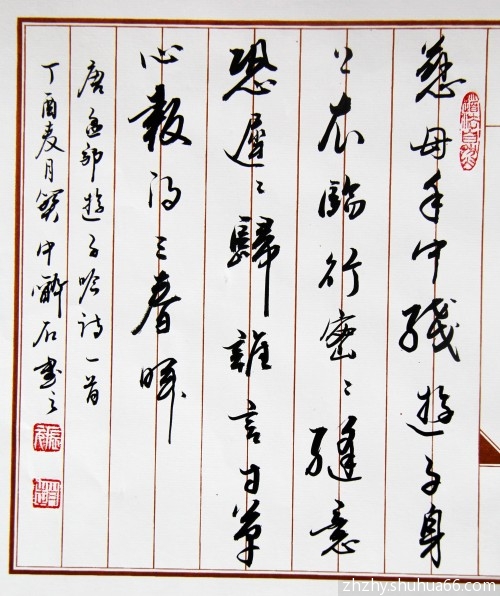 慈母手中綫遊子身
上衣臨行密〻縫意
恐遲〻歸誰言寸草
心報得三春暉
唐孟郊遊子吟詩一首
丁酉麦月關中醉石書之
道法自然
zhzhyshuhua66.com